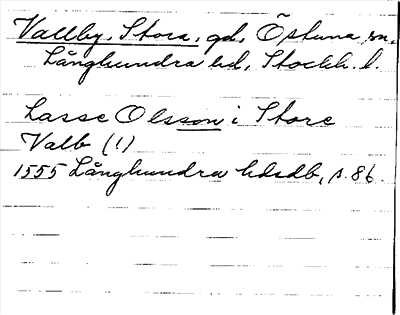 Vallby, Stora, gd, Östuna sn,
Långhundra hd, Stockh. l.
Lasse Olsson i Store
Valb (!)
1555 Långhundra hdsdb, s. 86.